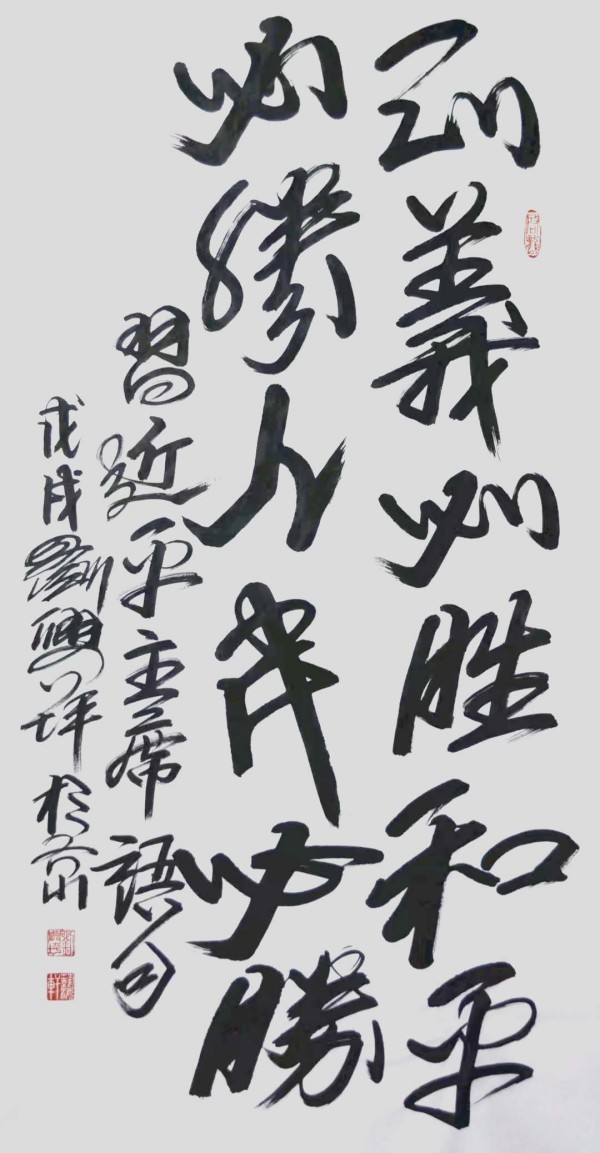 正義必胜和平
必勝人民必勝
習近平主席語句
戊戌劉興於京